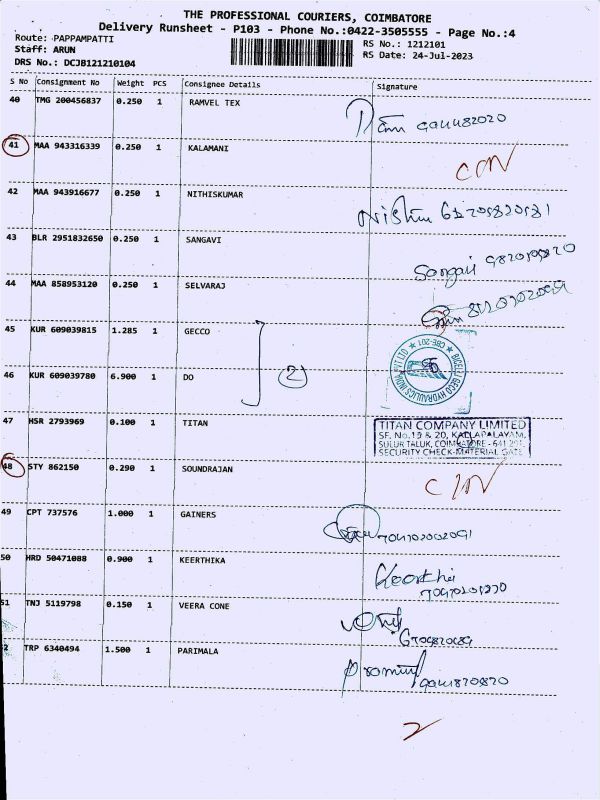 THE PROFESSIONAL COURIERS, COIMBATORE
Delivery Runsheet - P103 - Phone No.:0422-3505555 - Page No.:4
Route: PAPPAMPATTI
Staff: ARUN
DRS No.: DCJB121210104
RS No.: 1212101
RS Date: 24-Jul-2023
S No Consignment No Weight PCS Consignee Details Signature
40 TMG 200456837 0.250 1 RAMVEL TEX
41 MAA 943316339 0.250 1 KALAMANI
42 MAA 943916677 0.250 1 NITHISKUMAR
43 BLR 2951832650 0.250 1 SANGAVI
44 MAA 858953120 0.250 1 SELVARAJ
45 KUR 609039815 1.285 1 GECCO
46 KUR 609039780 6.900 1 DO (2)
47 HSR 2793969 0.100 1 TITAN
TITAN COMPANY LIMITED
SF. No.19 & 20, KALLAPALAYAM,
SULUR TALUK, COIMBATORE - 641 201.
SECURITY CHECK-MATERIAL GATE
48 STY 862150 0.290 1 SOUNDRAJAN
49 CPT 737576 1.000 1 GAINERS
50 HRD 50471088 0.900 1 KEERTHIKA
Keerthi
51 TNJ 5119798 0.150 1 VEERA CONE
2 TRP 6340494 1.500 1 PARIMALA
2